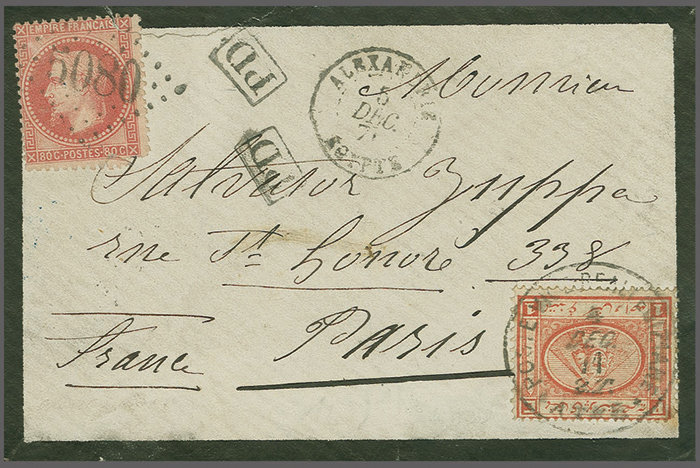 EMPIRE FRANÇAIS
5080
80 C · POSTES · 80 C
PD
PD
ALEXANDRIE
5
DEC.
EGYPTE
Monsieur
Salvator Zuppa
rue St. Honoré 338
Paris
France
1 1
DEC